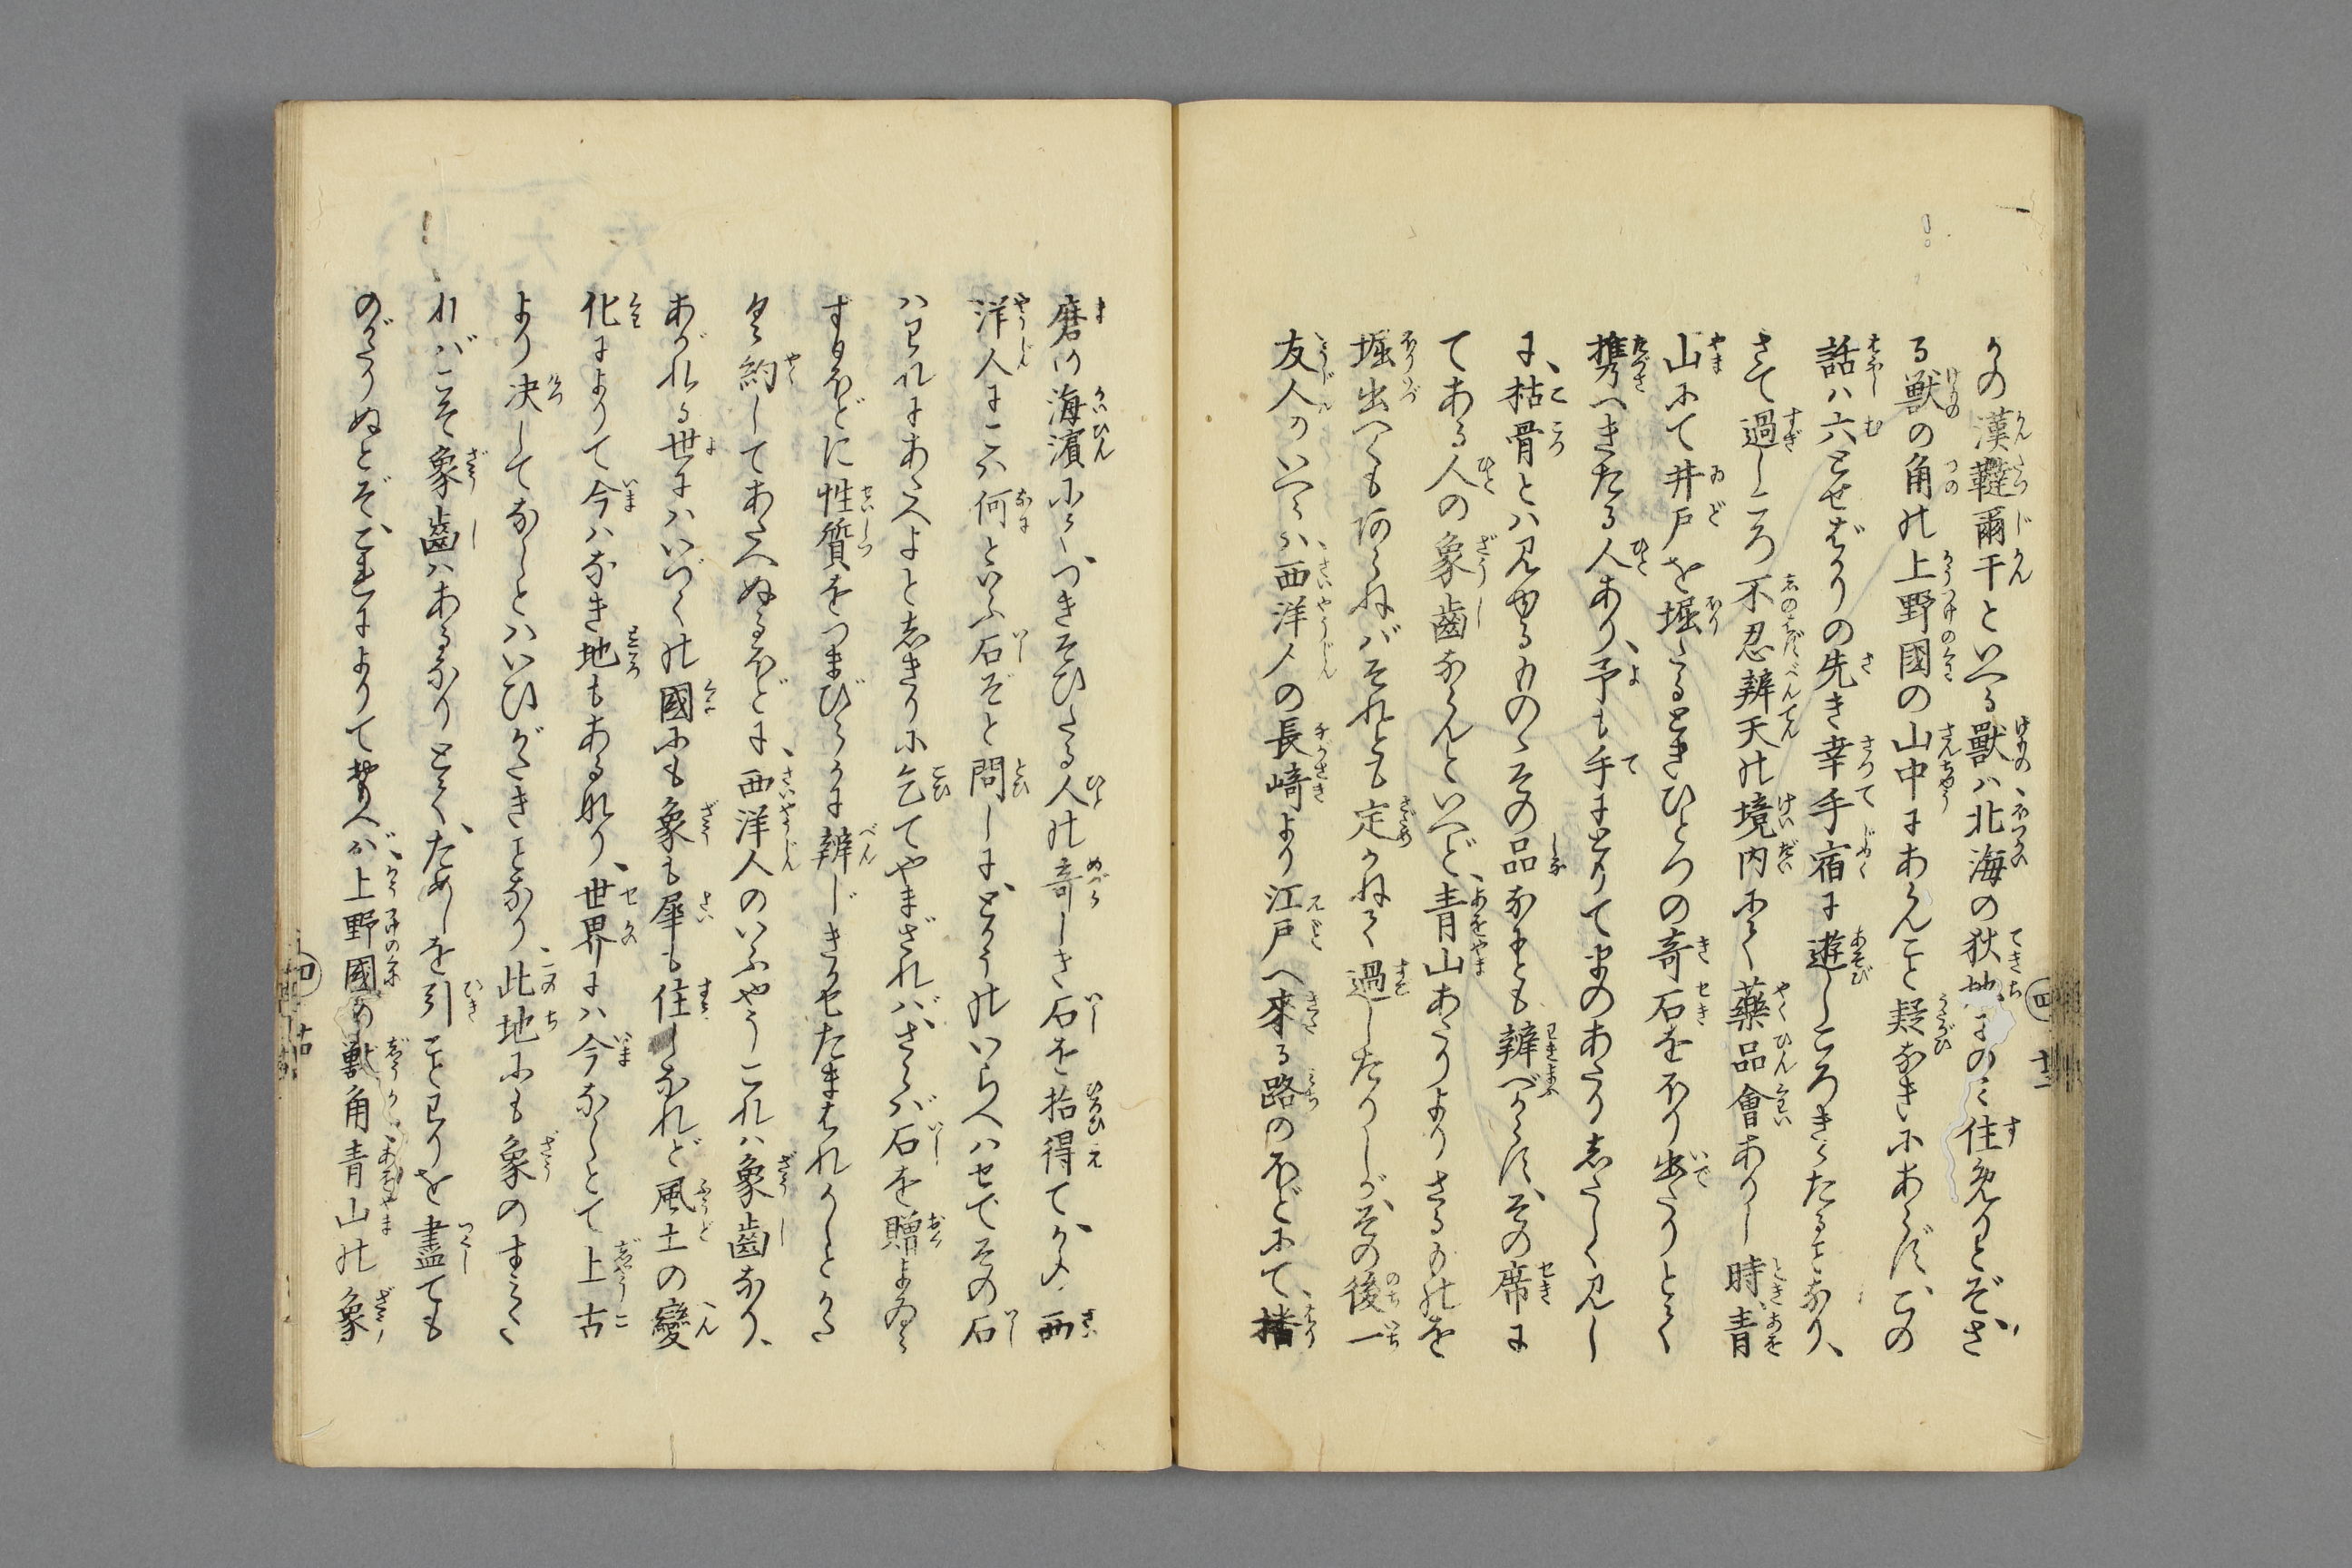 かの漢韃爾干といへる獸ハ北海の狄地にのミ住免りとぞ、さ
る獣の角の上野國の山中にあらんこと疑なきにあらず、この
話ハ六とせばかりの先き幸手宿に遊しころきゝたること なり、
さて過しころ不忍辨天の境内にて藥品會ありし時、青
山にて井戸を堀たるときひとつの奇石をほり出たりとて
携へきたる人あり、予も手にとりてまのあたりしたしく見し
に、枯骨とハ見ゆるものゝその品なにとも辨べからず、その席に
てある人の象齒ならんといへど、青山あたりよりさるものを
堀出べくもあらねバそれとも定かねて過したりしが、その後一
友人のいへるハ西洋人の長崎より江戸へ來る路のほどにて、播
磨の海濱にて、つきそひたる人の奇しき石を拾得て、かの西
洋人にこハ何といふ石ぞと問しに、とかうのいらへハせでその石
ハわれにあたへよとしきりに乞てやまざれバ、さらバ石を贈よるゝ
すほどに性質をつまびらかに辨じきかせたまはれかしとかた
く約してあたへぬるほどに、西洋人のいふやうこれハ象齒なり、
あがれる世にハいづくの國にも象も犀も住しなれど風土の變
化によりて今ハなき地もあるなり、世界にハ今なしとて上古
より決してなしとハいひがたきことなり、此地にも象のすミた
れバこそ象齒ハあるなりとて、ためしを引ことわりを盡ても
のがたりぬとぞ、これによりて考へバ、上野國の獣角青山の象